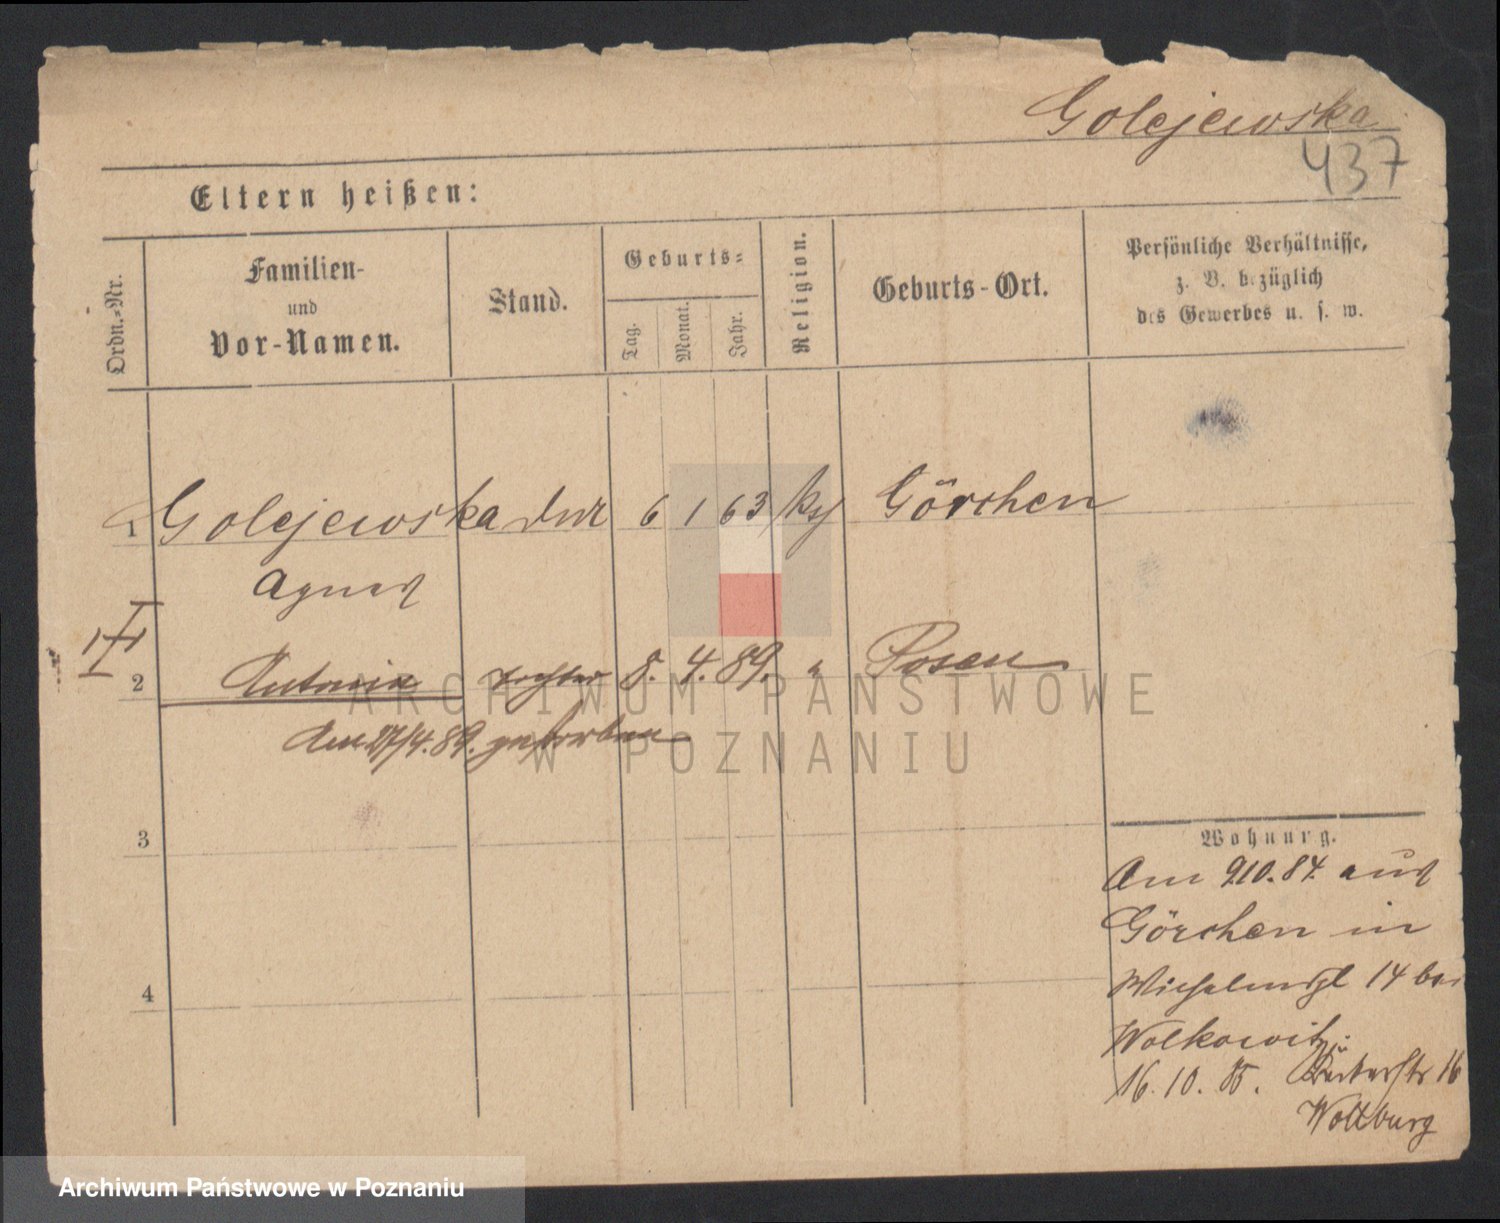 Golejewska
437
Eltern heißen:
Ordn.=Nr.
Familien-
und
Vor-Namen.
Stand.
Geburts=
Tag.
Monat.
Jahr.
Religion.
Geburts-Ort.
Persönliche Verhältnisse,
z. B. bezüglich
des Gewerbes u. s. w.
1 Golejewska 6 1 63 Görchen
Agnes
2 Antonia Tochter 8. 4. 89. " Posen
Am 27/4. 89. gestorben
3
4
Wohnung.
Am 9.10.84. aus
Görchen in
Wilhelmspl 14 bei
Wolkowitz.
16. 10. 85. 16
Wollburg
ARCHIWUM PAŃSTWOWE
W POZNANIU
Archiwum Państwowe w Poznaniu